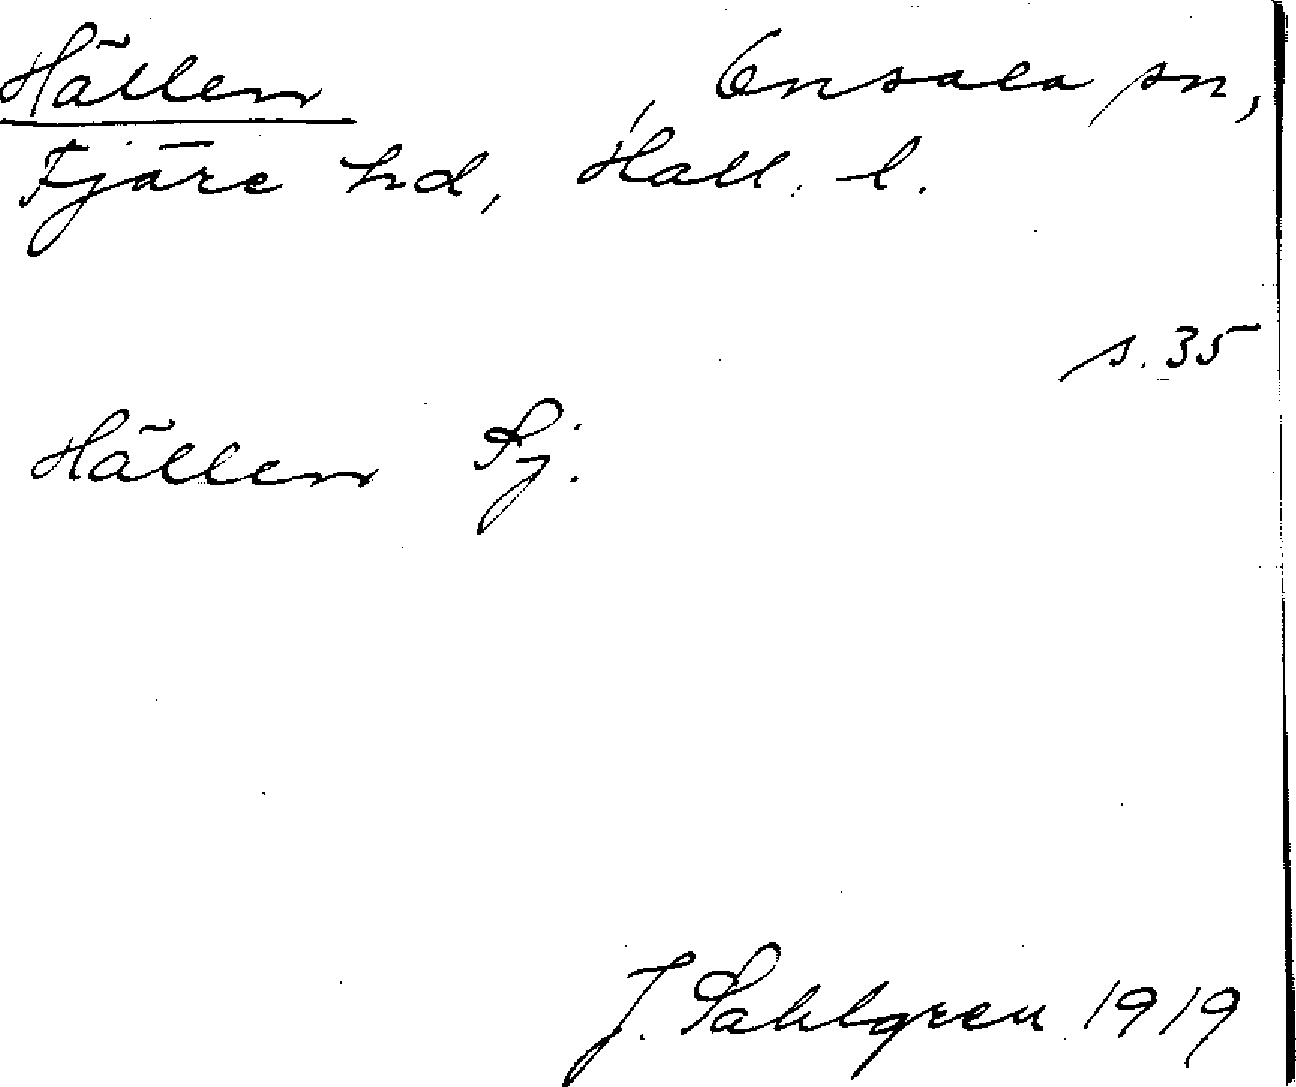 Hällen, Onsala sn,
Fjäre hd, Hall. l.
s. 35
Hällen Sj.
J. Sahlgren 1919